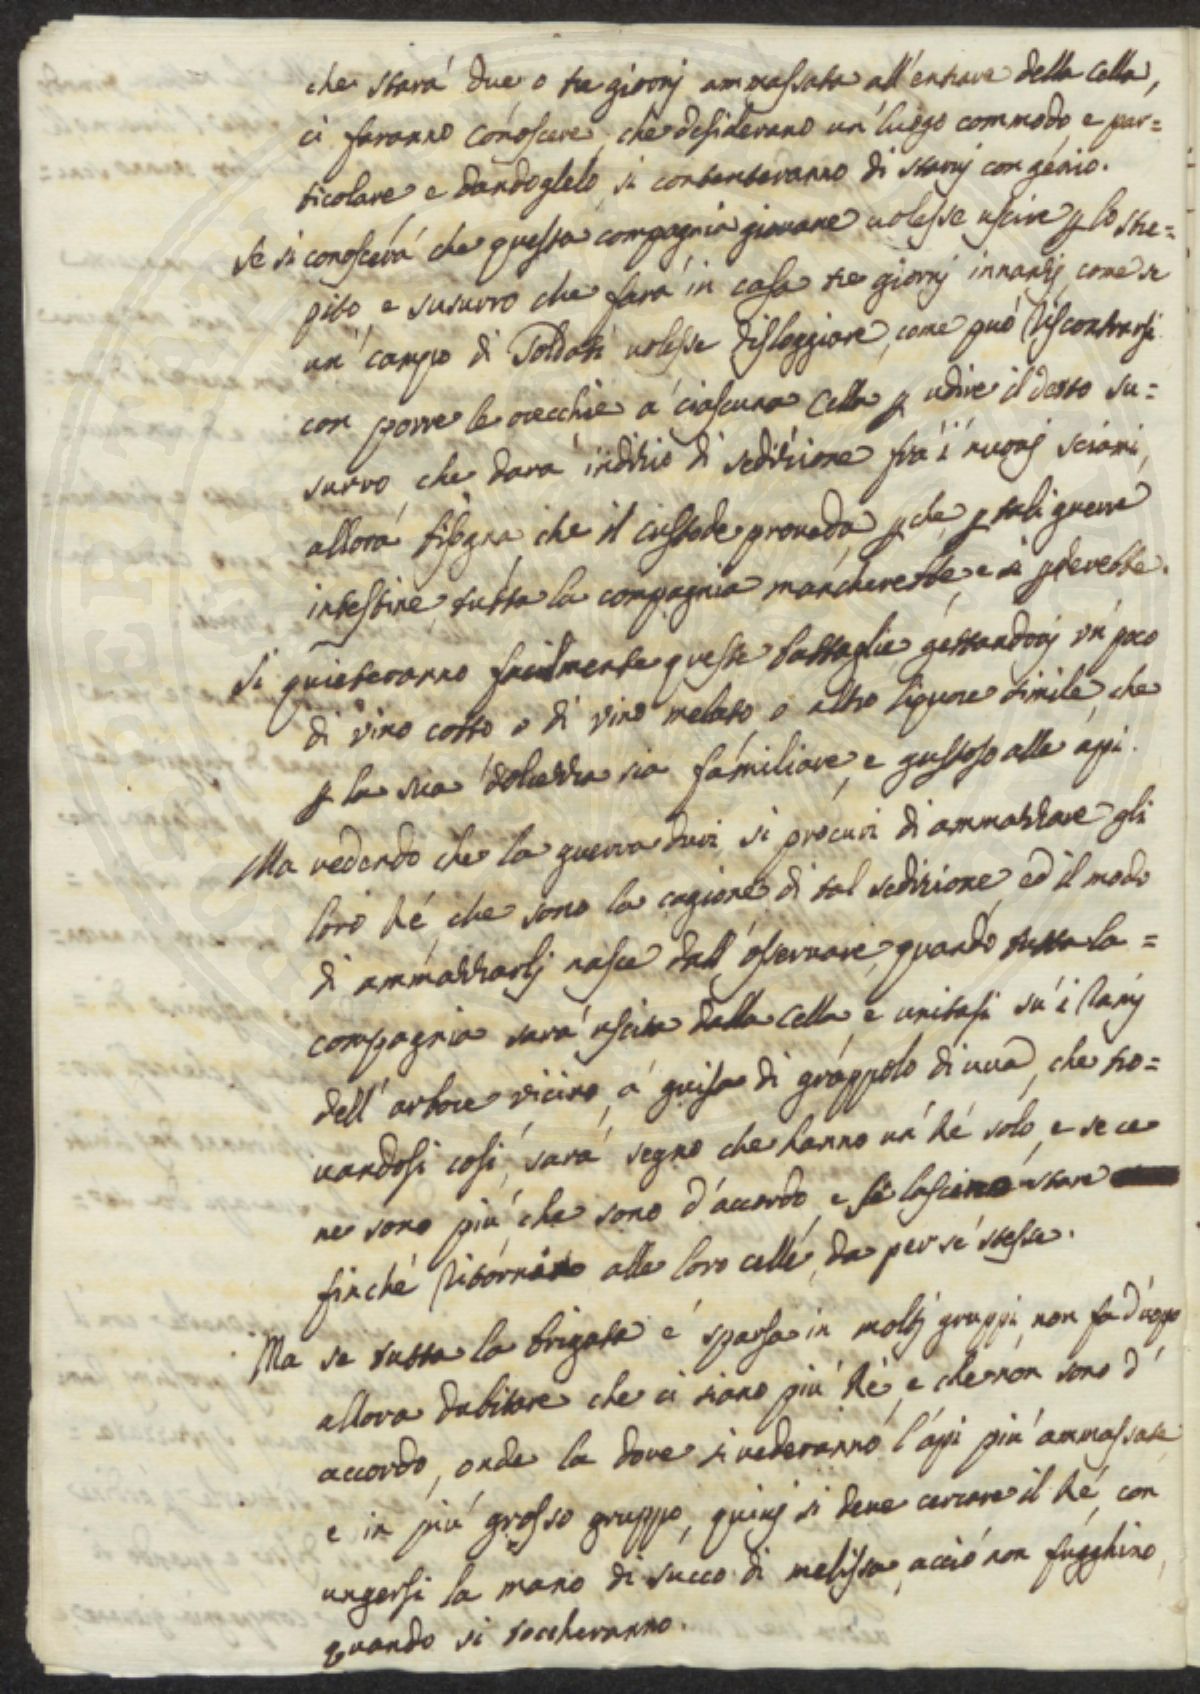 che stará due o tre giornj ammassata all'entrare della cella,
ci faranno cónoscere, che desiderano un' luógo commodo e par=
ticolare e dandoglelo, si contenteranno di starnj con génio.
Se si conoscerá che questa compagnia giouane uolesse uscire p lo stre=
pito e susurro che fará in casa tre giornj innanzj, come se
un' campo di Soldati uolesse disloggiare, come può riscontrarsi
con porre le orecchie á ciascuna Cella p udire il detto su=
surro, che dará indizio di sedizione frá i nuouj sciami,
allora bisogna che il custode proueda, p che p tali guerre
intestine, tutta la compagnia mancherebbe, e si pderebbe.
Si quieteranno facilmente queste battaglie géttandouj un poco
di vino cotto o di vino melato o altro liquore simile, che
p la sua dolcezza sia fámiliare, e gustoso alle ápi.
Ma uedendo che la guerra duri, si prócuri di ammazzare gli
loro Ré, che sono la cagione di tal sedizione, ed il modo
di ammazzarlj nasce dall' ósseruare, quando tutta la=
compagnia sará uscita dalla cella e unitasi sú i ramj
dell' arbore vicino, á guisa di gráppolo di uua, che tro=
uandosi cosí, sará segno che hanno un' Ré solo, e se ce
ne sono piú, che sono d'accordo, e si lascino stare
finché ritórnino alle loro celle, da per sé stesse.
Ma se tutta la brigata é sparsa in moltj gruppi, non fa d'uopo
allora dubitare che ci siano piú Ré, e che nón sono d'
accordo, onde la doue si uederanno l'ápi piú ammassate
e in piú grosso gruppo, quiuj si deue cercare il Ré, con
ungersi la mano di succo di melissa, acció non fúgghino,
quando si toccheranno.